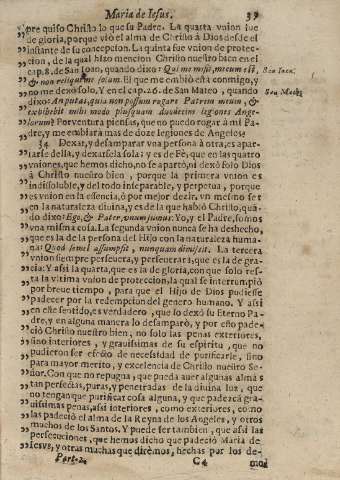 Maria de Iesus. 39
„pre quiso Christo lo que su Padre. La quarta vnion fue
„de gloria, porque viò el alma de Christo à Dios desde el
„instante de su concepcion. La quinta fue vnion de protec-
„cion, de la qual hizo mencion Christo nuestro bien en el
„cap. 8. de San Ioan, quando dixo: Qui me misit, mecum est, Ioan
„& non reliquit me solum. El que me embiò està conmigo, y
„no me dexò solo. Y en el cap. 26. de San Mateo, quando
„dixo: An putas, quia non possum rogare Patrem meum, &
„exhibebit mihi modo plusquam duodecim legiones Ange-
„lorum? Por ventura piensas, que no puedo rogar à mi Pa-
„dre, y me embiarà mas de doze legiones de Angeles?
„ 34. Dexar, y desamparar vna persona à otra, es apar-
„tarse della, y dexarsela sola: y es de Fè, que en las quatro
„vniones, que hemos dicho, no se apartò, ni dexò solo Dios
„à Christo nuestro bien, porque la primera vnion es
„indissoluble, y del todo inseparable, y perpetua, porque
„es vnion en la essencia, ò por mejor dezir, vn mesmo ser
„en la naturaleza divina, y es de la que hablò Christo, quã
„do dixo: Ego, & Pater, vnum sumus: Yo, y el Padre, somos
„vna misma cosa. La segunda vnion nunca se ha deshecho,
„que es la de la persona del Hijo con la naturaleza huma-
„na: Quod semel assumpsit, nunquam dimisit. La tercera
„vnion siempre persevera, y perseverarà, que es la de gra-
„cia: Y assi la quarta, que es la de gloria, con que solo res-
„ta la vltima vnion de proteccion, la qual se interrumpiò
„por breve tiempo, para que el Hijo de Dios pudiesse
„padecer por la redempcion del genero humano. Y assi
„en este sentido, es verdadero, que lo dexò su Eterno Pa-
„dre, y en alguna manera lo desamparò, y por esto pade-
„ciò Christo nuestro bien, no solo las penas exteriores,
„sino interiores, y gravissimas de su espiritu, que no
„pudieron ser efecto de necesidad de purificarse, sino
„para mayor merito, y excelencia de Christo nuestro Se-
„ñor. Con que no repugna, que pueda auer algunas almas
„tan perfectas, puras, y penetradas de la divina luz, que
„no tengan que purificar cosa alguna, y que padezcã gra-
„uissimas penas, assi interiores, como exteriores, como
„las padeciò el alma de la Reyna de los Angeles, y otros
„muchos de los Santos. Y puede ser tambien, que assi las
„persecuciones, que hemos dicho que padeciò Maria de
„Iesus, y otras muchas que dirèmos, hechas por los de-
Part. 2. C4 mo-